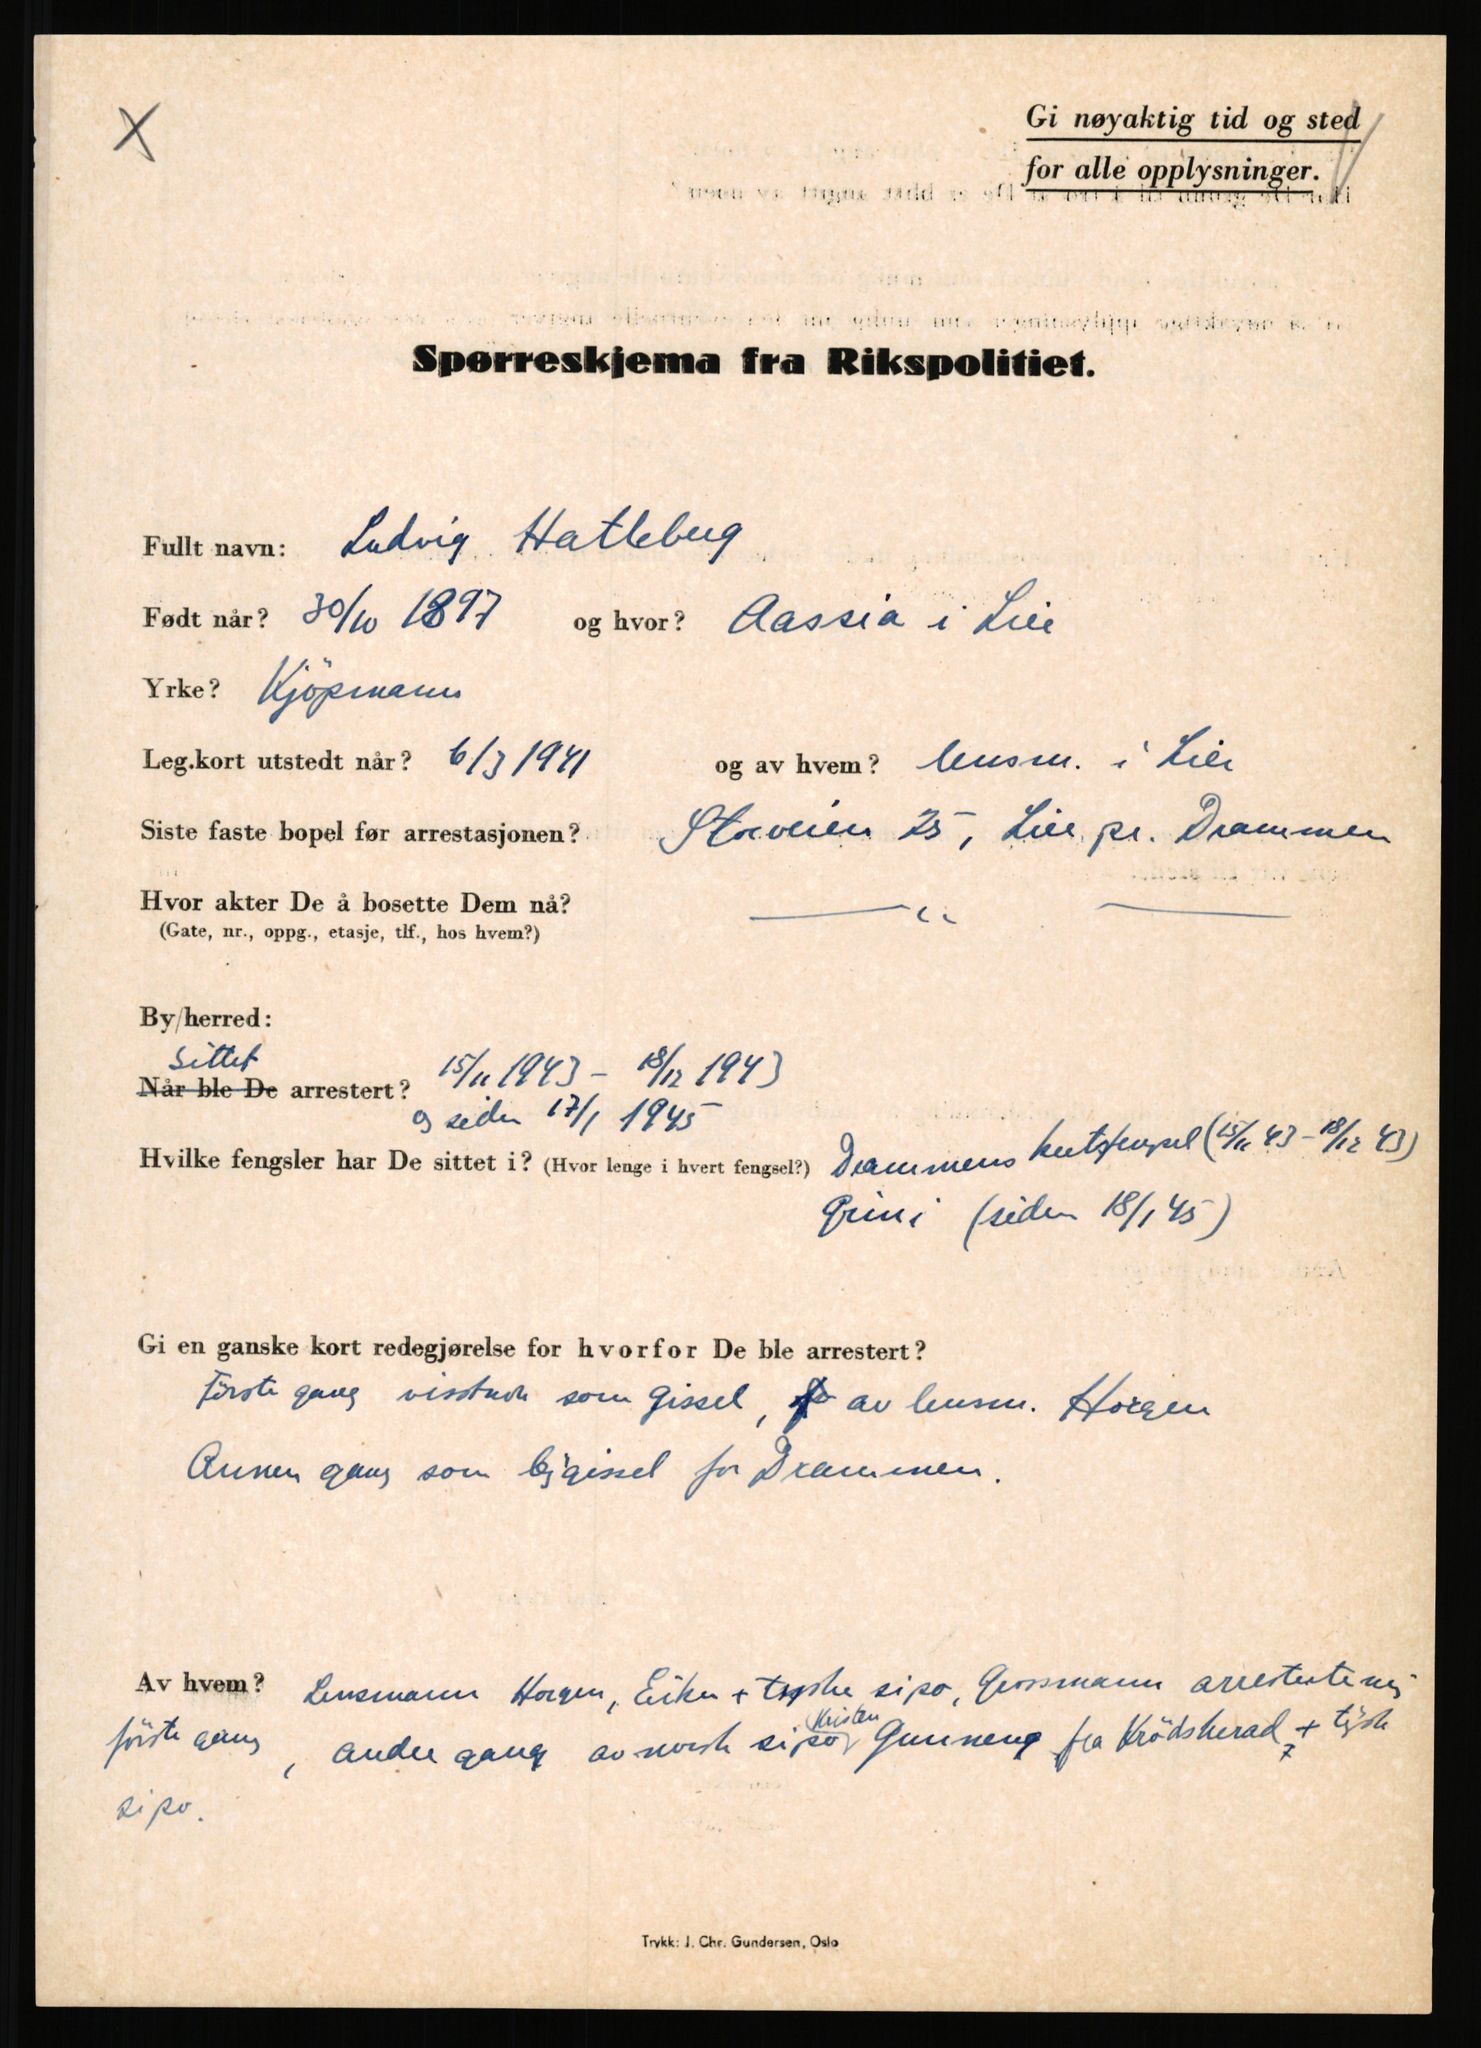 Gi nøyaktig tid og sted
for alle opplysninger.
Spørreskjema fra Rikspolitiet.
Fullt navn: Ludvig Hatleberg
Født når? 30/10 1897 og hvor? Aassia i Lier
Yrke? Kjöpmann
Leg.kort utstedt når? 6/3 1941 og av hvem? lensm. i Lier
Siste faste bopel før arrestasjonen? Storveien 25, Lier pr. Drammen
Hvor akter De å bosette Dem nå? — " —
(Gate, nr., oppg., etasje, tlf., hos hvem?)
By/herred:
Sittet
Når ble De arrestert? 15/11 1943 – 18/12 1943
og siden 17/1 1945
Hvilke fengsler har De sittet i? (Hvor lenge i hvert fengsel?) Drammens kretsfengsel (15/11 43 – 18/12 43)
Grini (siden 18/1 45)
Gi en ganske kort redegjørelse for hvorfor De ble arrestert?
Förste gang visstnok som gissel, av lensm. Horgen
Annen gang som bygissel for Drammen.
Av hvem? Lensmann Horgen, Eiker + tyske sipo, Grossmann arresterte mig
förste gang, andre gang av norsk sipo Kristen Gunneng fra Krödsherad + tysk
sipo.
Trykk: J. Chr. Gundersen, Oslo